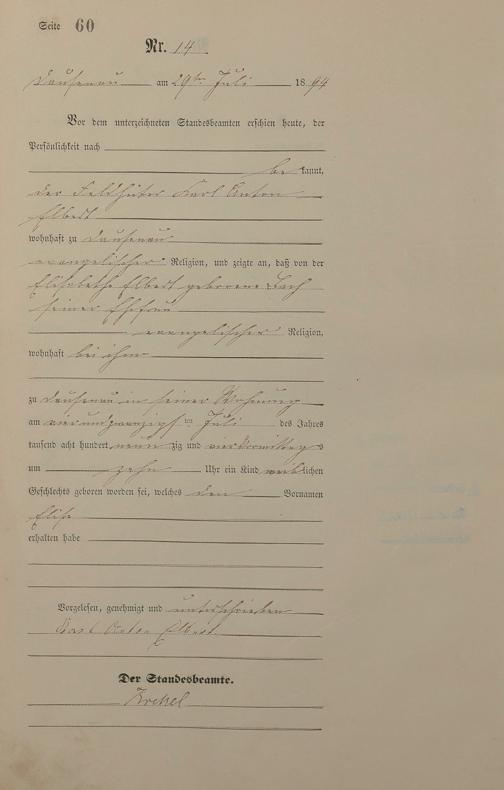 Seite 60
Nr. 14
Dausenau am 29ten Juli 1894
Vor dem unterzeichneten Standesbeamten erschien heute, der
Persönlichkeit nach
be kannt,
der Feldhüter Karl Anton
Elbert
wohnhaft zu Dausenau
evangelischer Religion, und zeigte an, daß von der
Elisabethe Elbert geborene Bach
seiner Ehefrau
evangelischer Religion,
wohnhaft bei ihm
zu Dausenau in seiner Wohnung
am vierundzwanzigsten Juli des Jahres
tausend acht hundert neun zig und vier Vormittags
um zehn Uhr ein Kind weiblichen
Geschlechts geboren worden sei, welches den Vornamen
Elise
erhalten habe
Vorgelesen, genehmigt und unterschrieben
Karl Anton Elbert
Der Standesbeamte.